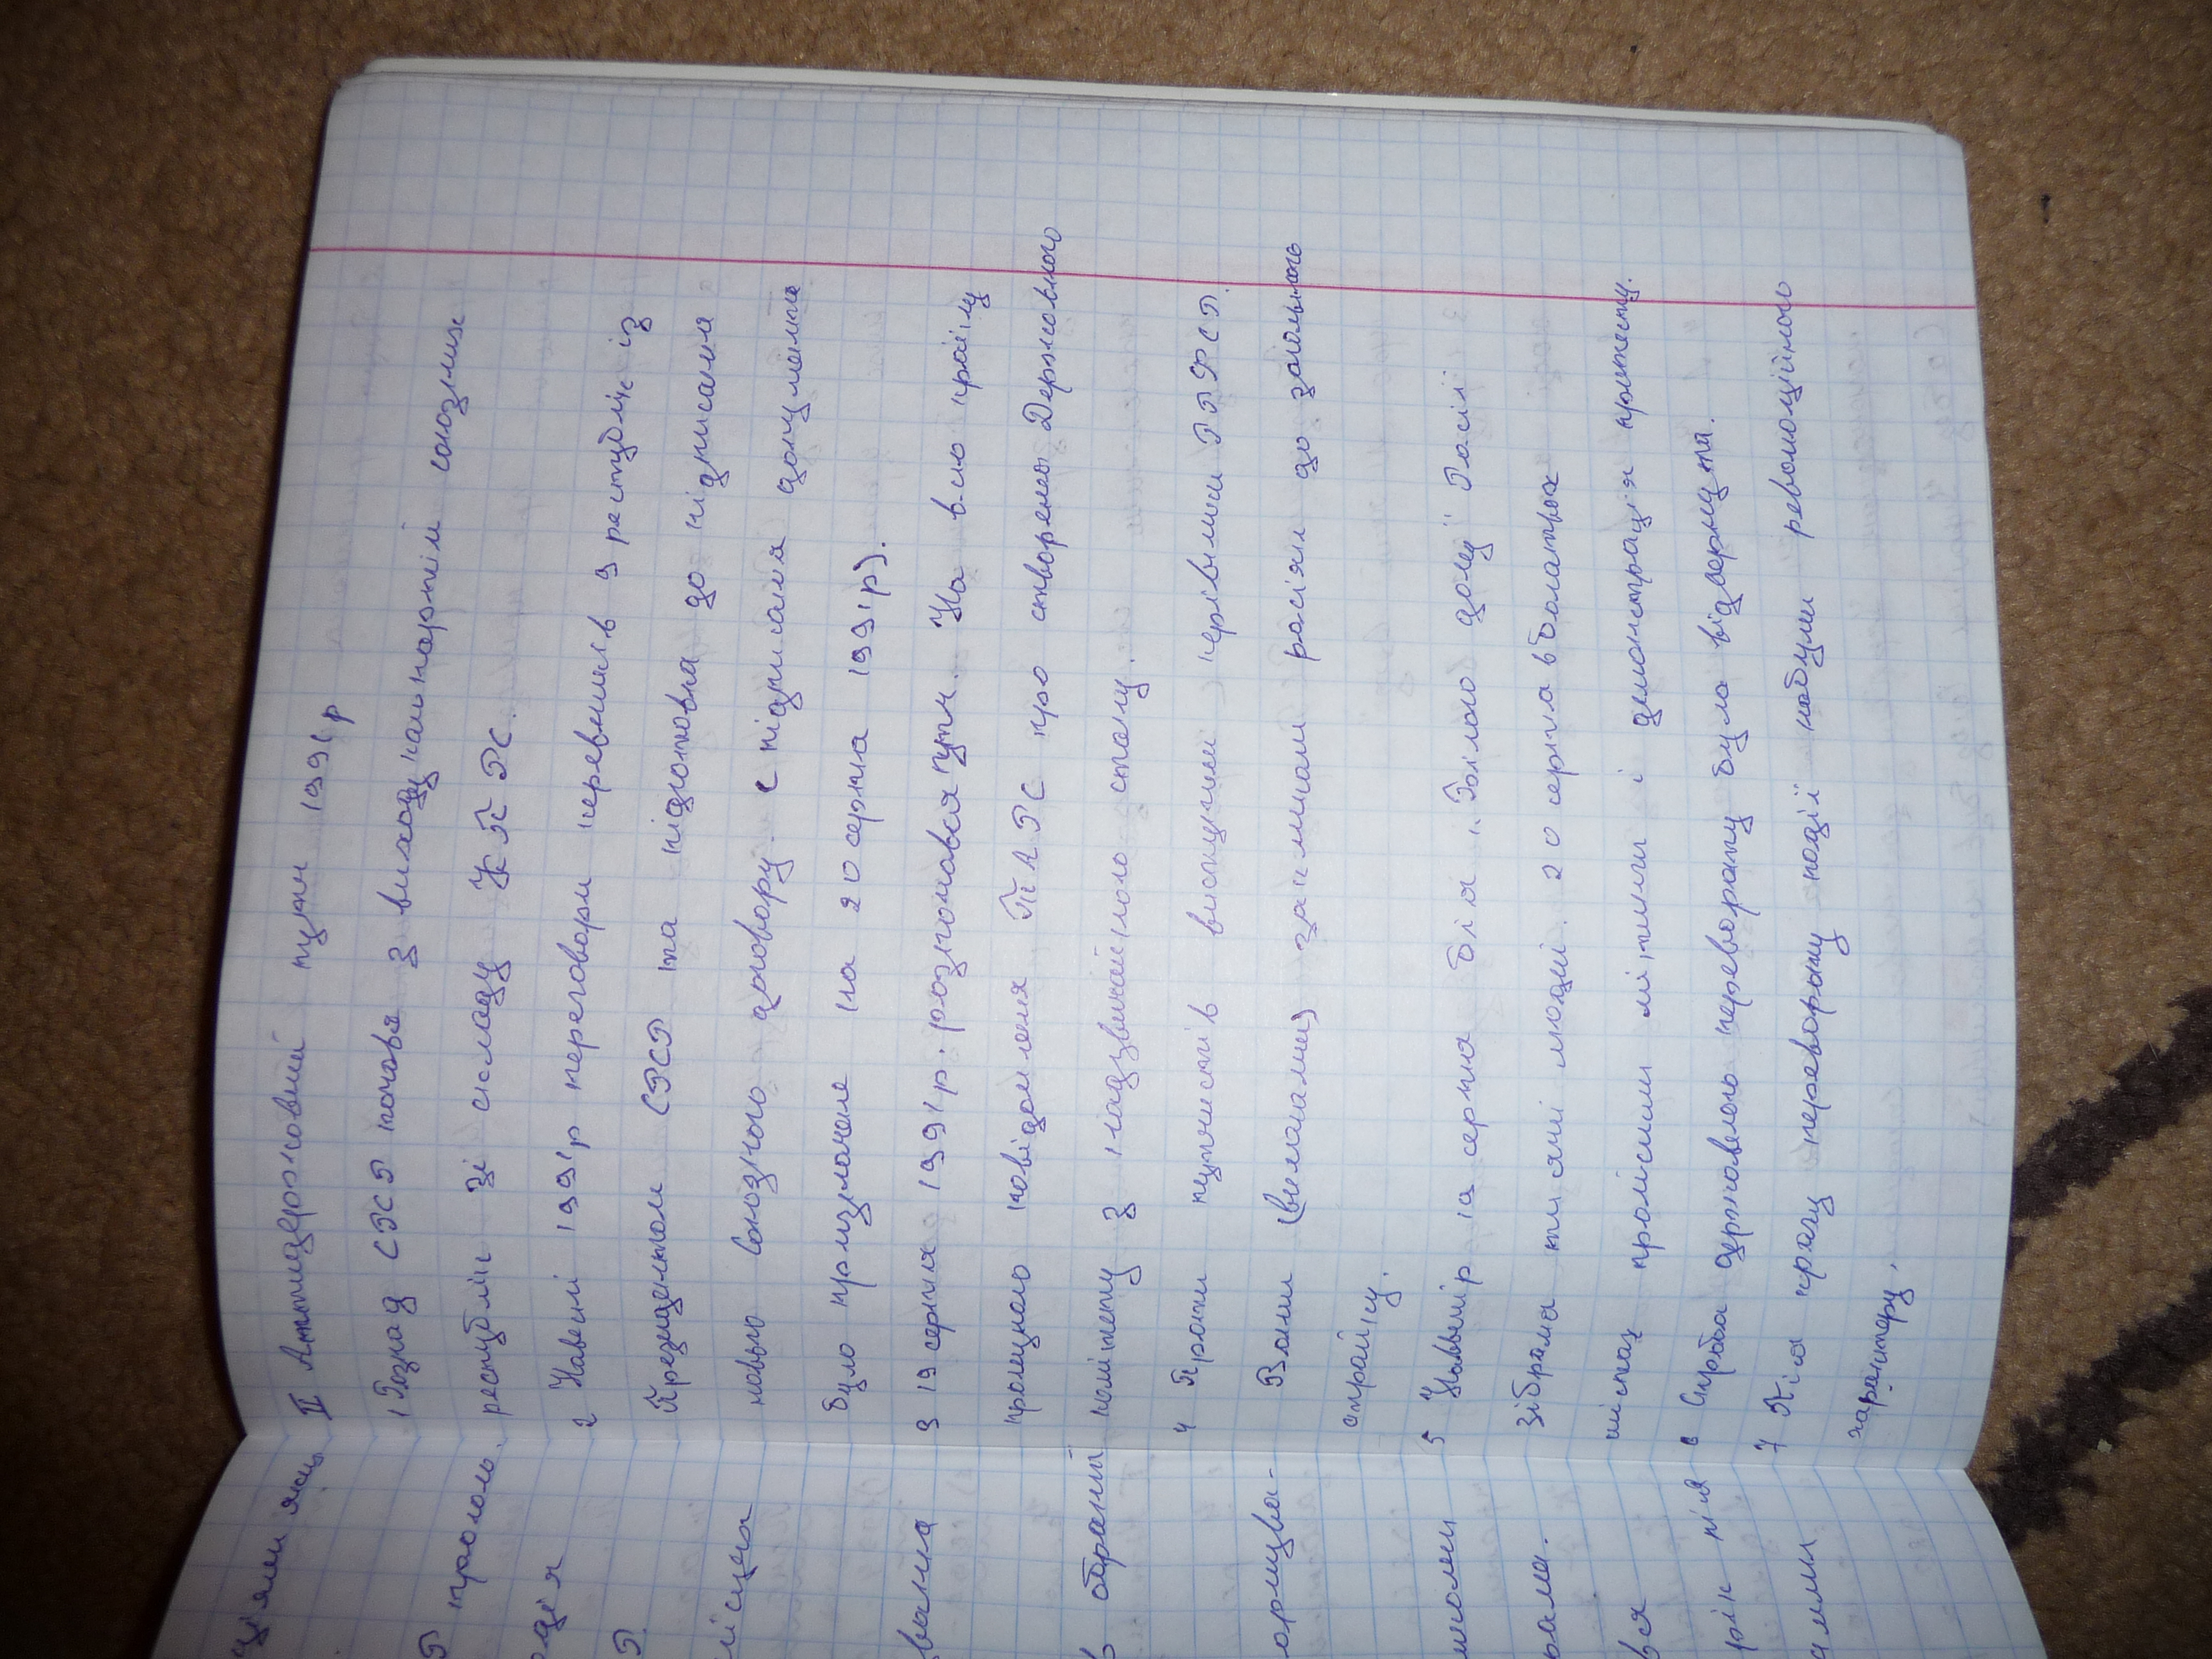 II Антидержовний путч 1991р
1 Розпад СРСР почався з виходу компортій союзних
республік зі складу КПРС.
2 Навесні 1991р переговори керівників 9 республік із
Президентом СРСР та підготовка до підписання
нового Союзного договору. (підписання документа
було призначене на 20 серпня 1991р).
3 19 серпня 1991р. розпочався путч. На всю країну
пролунало повідомлення ТАРС про створення Державного
комітету з надзвичайного стану.
4 Проти путчистів виступили керівники РРФСР.
Вони закликали росіян до загального
страйку.
5 Ввечері 19 серпня біля "Білого дому" Росії
зібралися тисячі людей. 20 серпня в багатьох
містах пройшли мітинги і демонстрація протесту.
6 Спроба державного перевороту була відвернута.
7 Після краху перевороту події набули революційного
характеру.
ціями яких
Р проголо.
одія
Р.
місцях
вання
в обраний
ормува-
рама.
вся
рік після